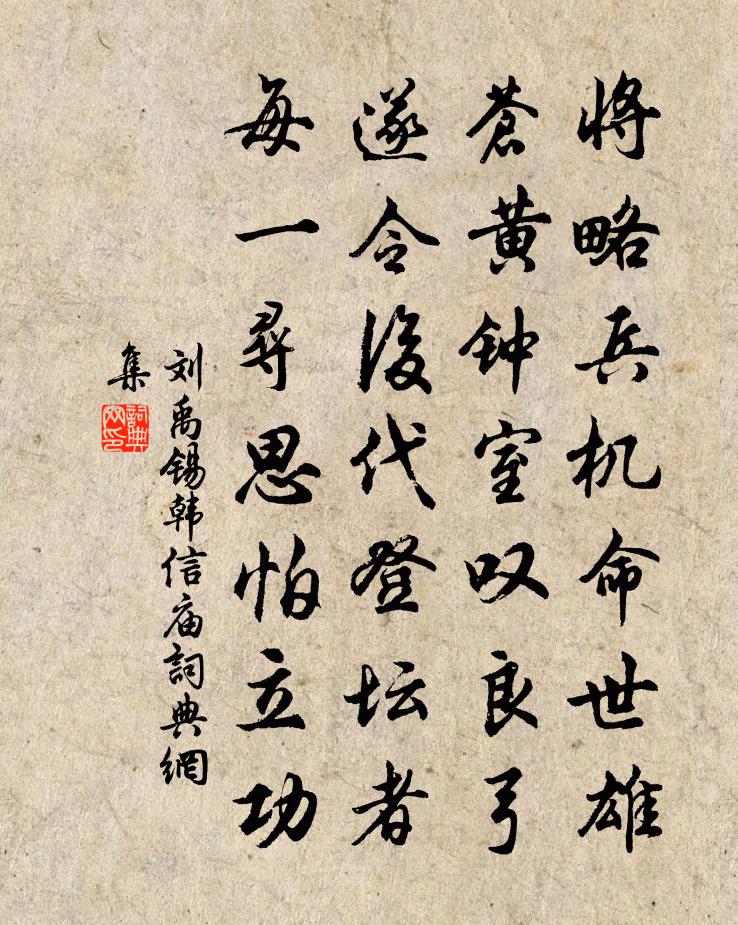 将略兵机命世雄
苍黄钟室叹良弓
遂令後代登坛者
每一寻思怕立功
刘禹锡韩信庙詞典網
集
詞典
网印